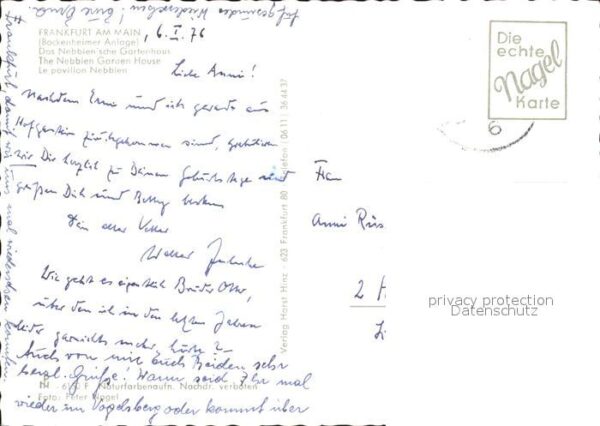 auf gesundes Wiedersehen! Eure Erna.
FRANKFURT AM MAIN
(Bockenheimer Anlage)
Das Nebbien'sche Gartenhaus
The Nebbien Garden House
Le pavillon Nebbien
6. I. 76
Liebe Anni!
Nachdem Erna und ich gerade aus
Hofgastein zurückgekommen sind, gratulieren
wir Dir herzlich zu Deinem Geburtstage und
grüßen Dich und Betty bestens
Dein alter Vetter
Walter
Wie geht es eigentlich Bruder Otto,
über den ich in den letzten Jahren
leider garnichts mehr hörte?
Auch von mir Euch Beiden sehr
herzl. Grüße! Wann seid Ihr mal
wieder im Vogelsberg oder kommt über
Frankfurt damit wir uns mal wiedersehen können.
N 610 F Naturfarbenaufn. Nachdr. verboten
Foto: Peter Nagel
Verlag Horst Hinz 623 Frankfurt 80 Telefon (0611) 364437
Die
echte
Nagel
Karte
Frau
Anni
2
privacy protection
Datenschutz